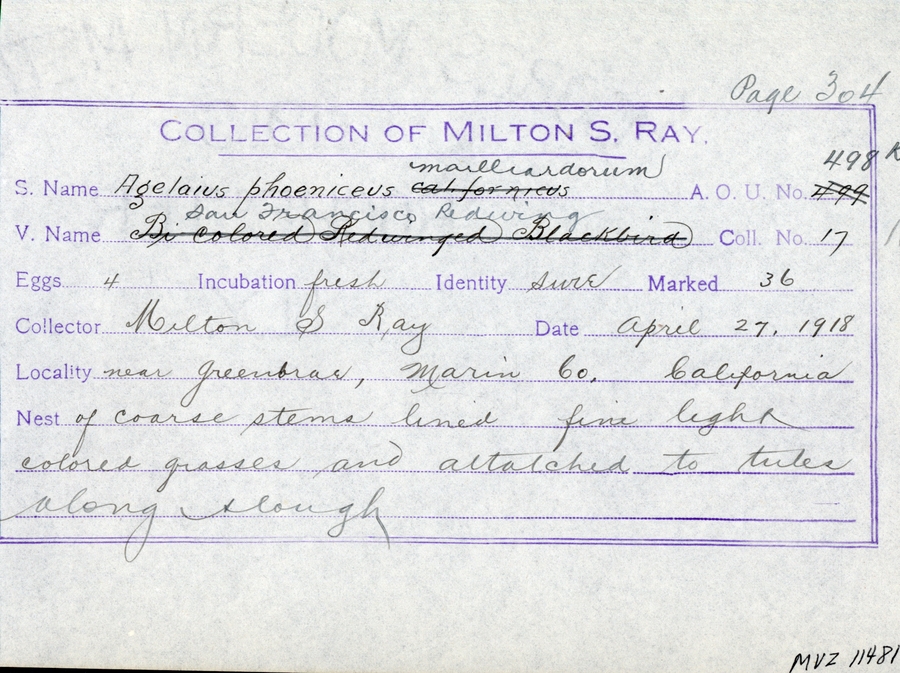 Page 304
COLLECTION OF MILTON S. RAY.
mailliardorum 498 k
S. Name Agelaius phoeniceus californicus A. O. U. No. 499
San Francisco Redwing
V. Name Bi-colored Redwinged Blackbird Coll. No. 17
Eggs 4 Incubation fresh Identity sure Marked 36
Collector Milton S Ray Date April 27, 1918
Locality near Greenbrae, Marin Co, California
Nest of coarse stems lined fine light
colored grasses and attatched to tules
along slough
MVZ 11481